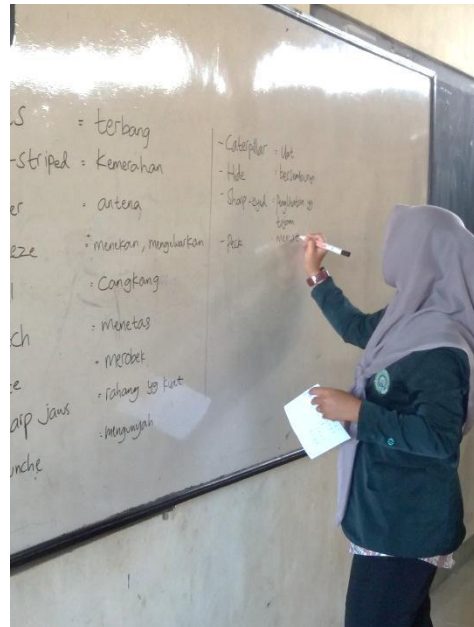 s = terbang
-striped = Kemerahan
er : antena
eze : menekan, mengeluarkan
l : Cangkang
ch : menetas
e : merobek
aip jaws : rahang yg kuat
unche : mengunyah
- Caterpillar = Ulat
- Hide : bersembunyi
- Sharp-eyed : Penglihatan yg
tajam
- Peck